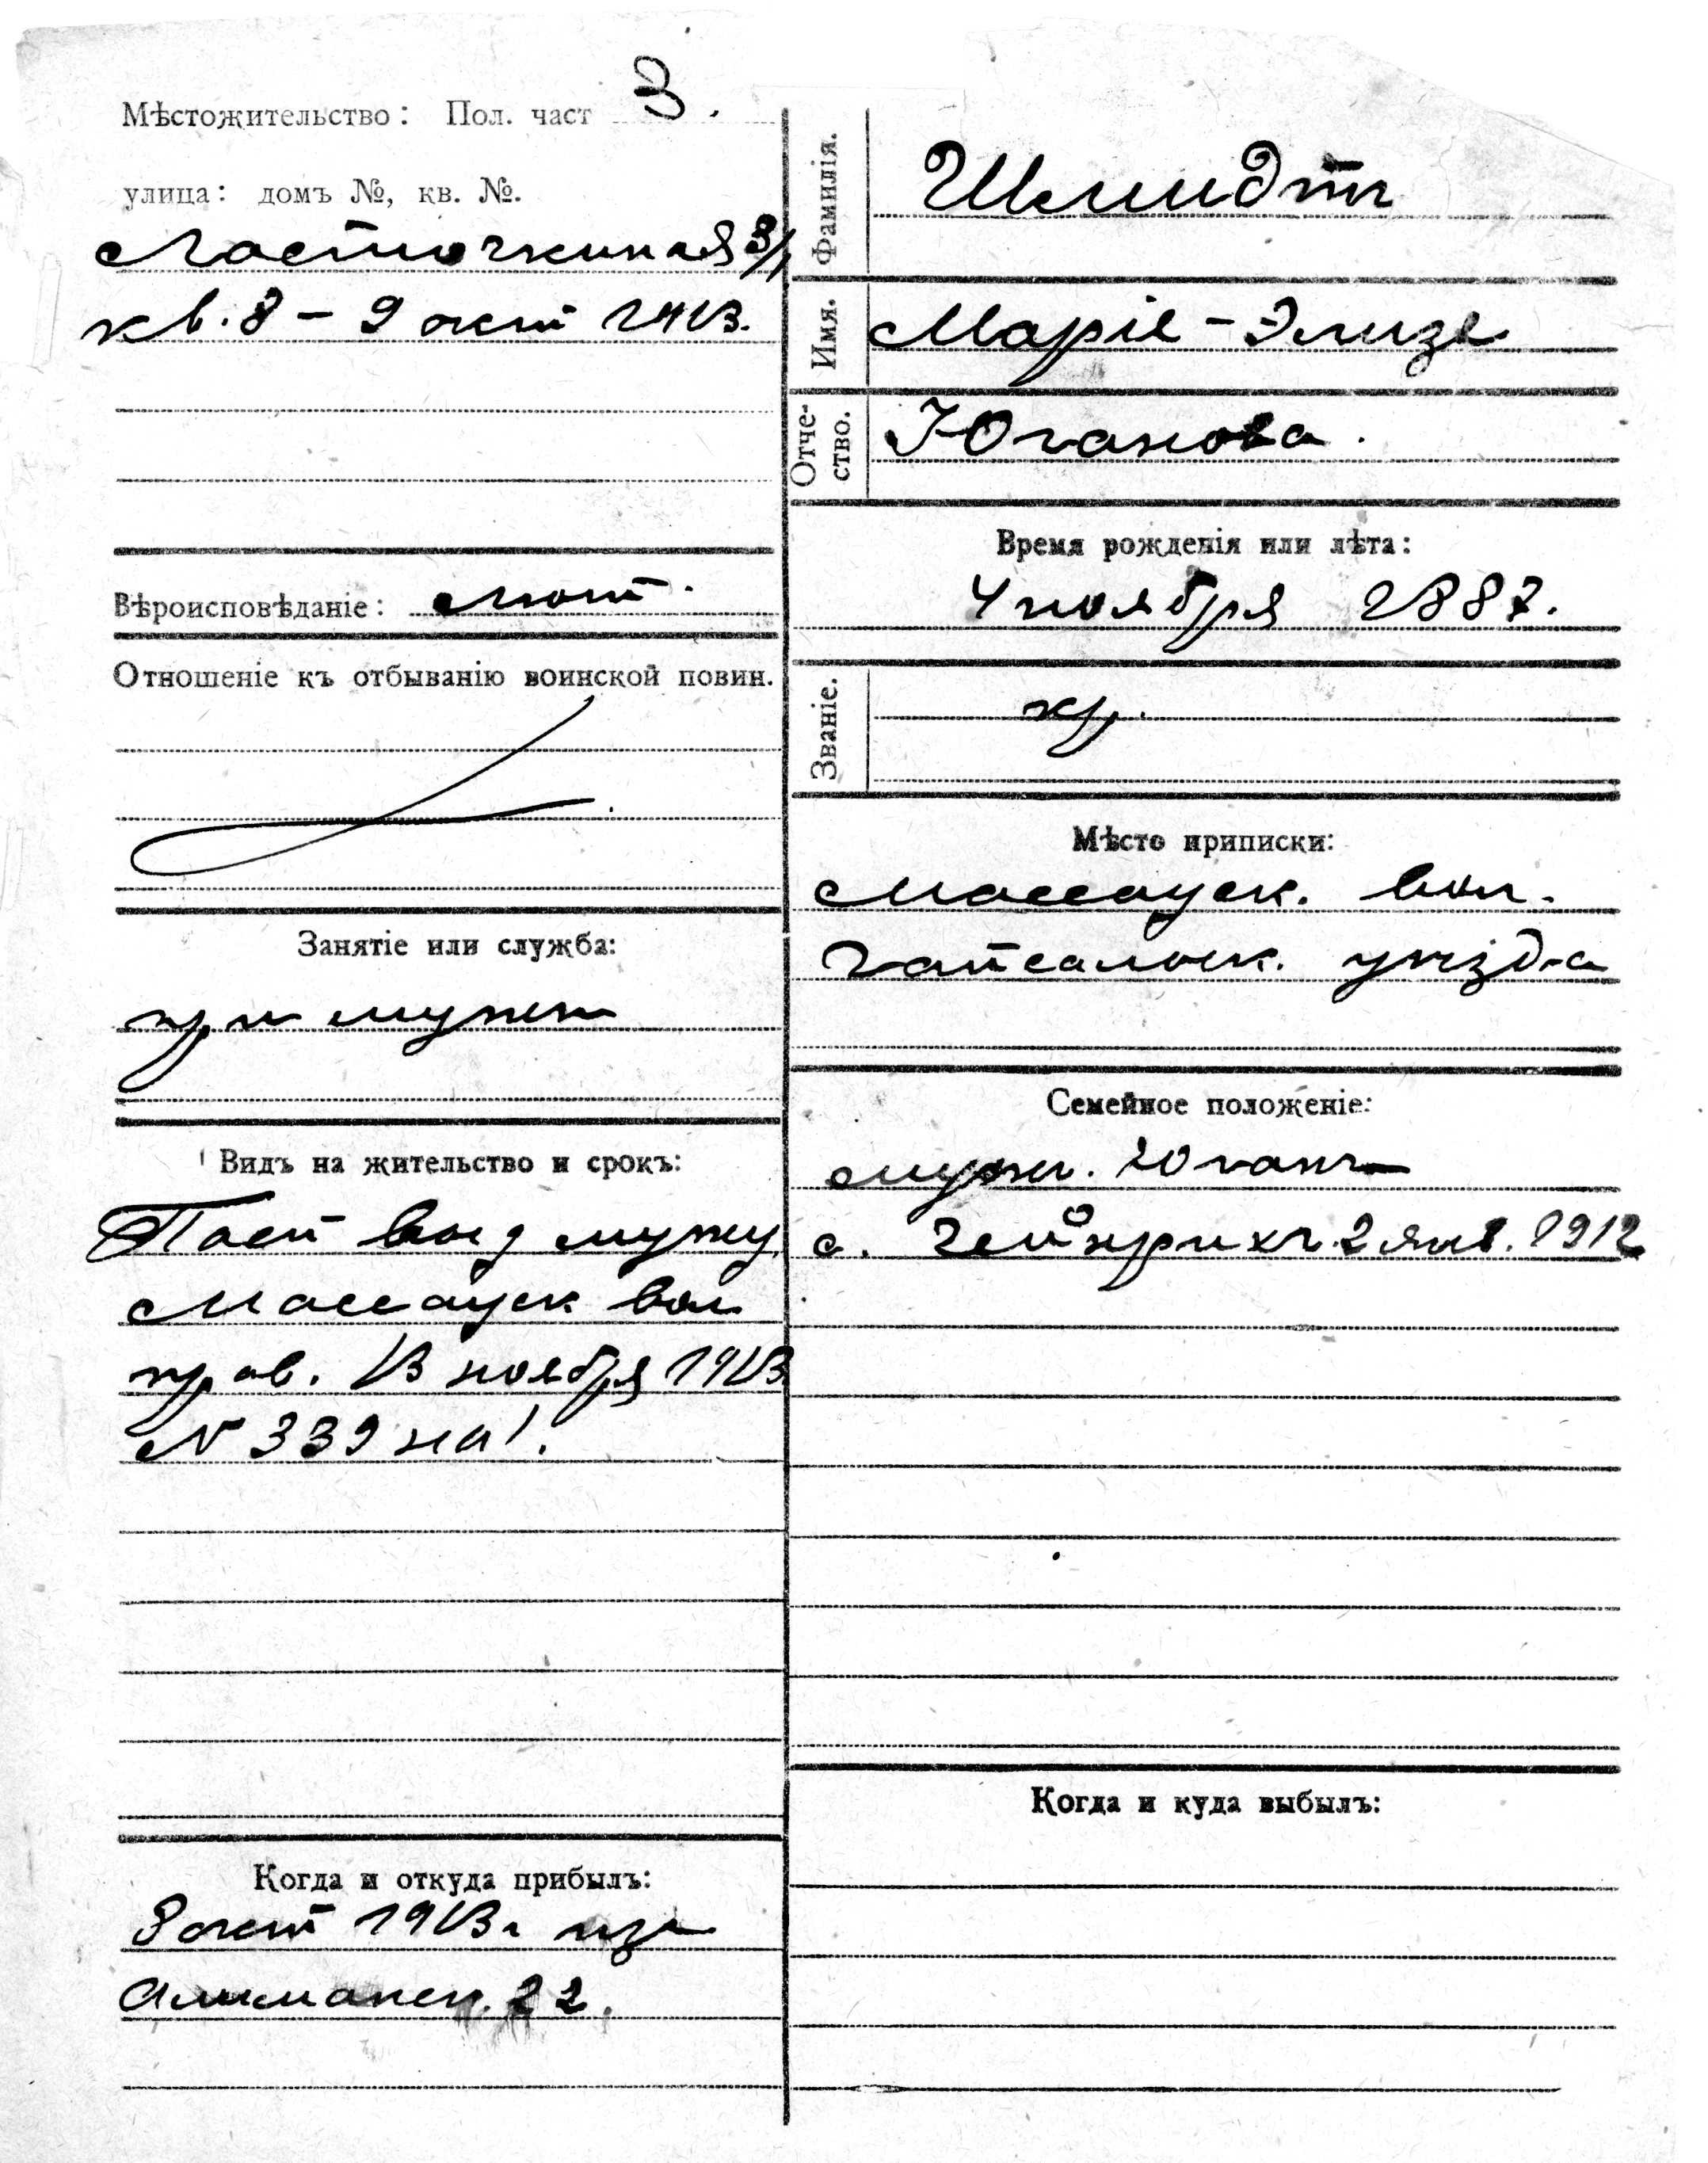 Мѣстожительство: Пол. част 3.
улица: домъ №, кв. №.
Ласточкина я 3/1
кв. 8 – 9 окт 1913.
Вѣроисповѣданіе: лют.
Отношеніе къ отбыванію воинской повин.
Занятіе или служба:
при муже
Видъ на жительство и срокъ:
Масеауск вол
прав. 13 ноября 1913
N 339 на 1.
Когда и откуда прибылъ:
8 окт 1913 г из
22.
Фамилія.
Шмидтъ
Имя.
Маріе-Элизе
Отче-
ство.
Юганова.
Время рожденія или лѣта:
4 ноября 1887.
Званіе.
кр.
Мѣсто приписки:
Масеауск. вол.
Гапсальск. уѣзда
Семейное положеніе:
муж. Юганъ
с. Гейнрихъ 2 янв. 1912
Когда и куда выбылъ: